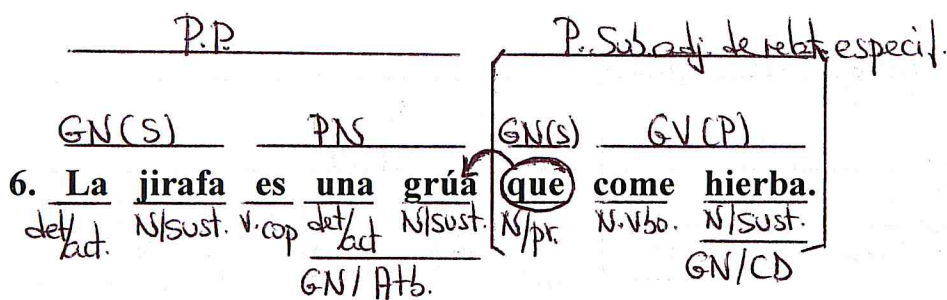 P.P. P. Sub. adj. de relat. especif.
GN(S) PN GN(S) GV(P)
6. La jirafa es una grúa que come hierba.
det/act. N/sust. V.cop det/act N/sust. N/pr. N.Vbo. N/sust.
GN/Atb. GN/CD